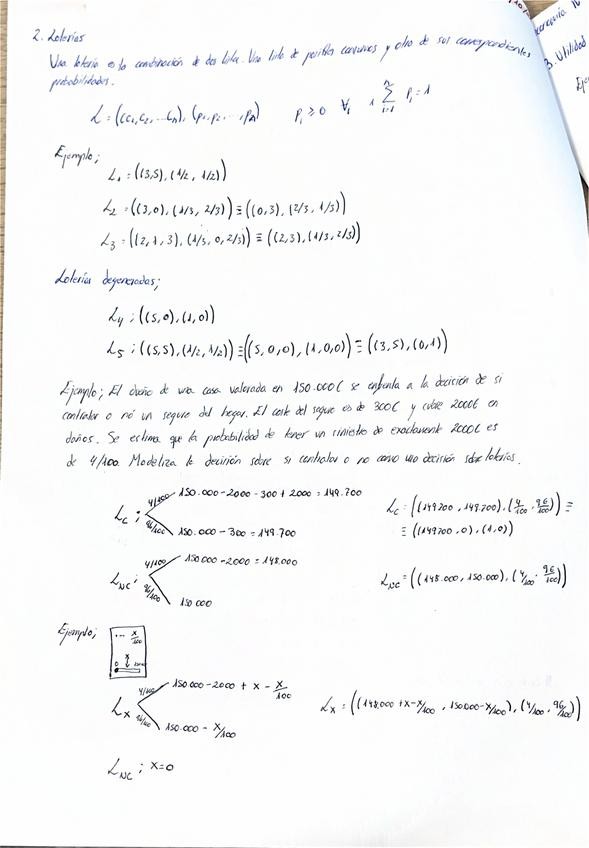 2. Loterías
Una lotería es la combinación de dos listas. Una lista de posibles consumos y otra de sus correspondientes
probabilidades.
L = ((c1, c2, ... cn), (p1, p2, ... , pn)) Pi ≥ 0 ∀i 1 Σ i=1 n Pi = 1
Ejemplo;
L1 = ((3,5), (1/2, 1/2))
L2 = ((3,0), (1/3, 2/3)) ≡ ((0,3), (2/3, 1/3))
L3 = ((2,1,3), (1/3, 0, 2/3)) ≡ ((2,3), (1/3, 2/3))
Loterías degeneradas;
L4 ; ((5,0), (1,0))
L5 ; ((5,5), (1/2, 1/2)) ≡ ((5,0,0), (1,0,0)) ≡ ((3,5), (0,1))
Ejemplo; El dueño de una casa valorada en 150.000€ se enfrenta a la decisión de si
contratar o nó un seguro del hogar. El coste del seguro es de 300€ y cubre 2000€ en
daños. Se estima que la probabilidad de tener un siniestro de exactamente 2000€ es
de 4/100. Modeliza la decisión sobre si contratar o no como una decisión sobre loterías.
4/100 150.000 - 2000 - 300 + 2000 = 149.700
Lc ; Lc = ((149700, 149.700), (4/100, 96/100)) ≡
96/100 150.000 - 300 = 149.700 ≡ ((149700, 0), (1,0))
4/100 150.000 - 2000 = 148.000
LNC ; LNC = ((148.000, 150.000), (4/100, 96/100))
96/100 150000
Ejemplo; ... x/100
x
0
4/100 150.000 - 2000 + x - x/100
Lx Lx = ((148.000 + x - x/100, 150.000 - x/100), (4/100, 96/100))
96/100 150.000 - x/100
LNC ; x = 0
3. Utilidad